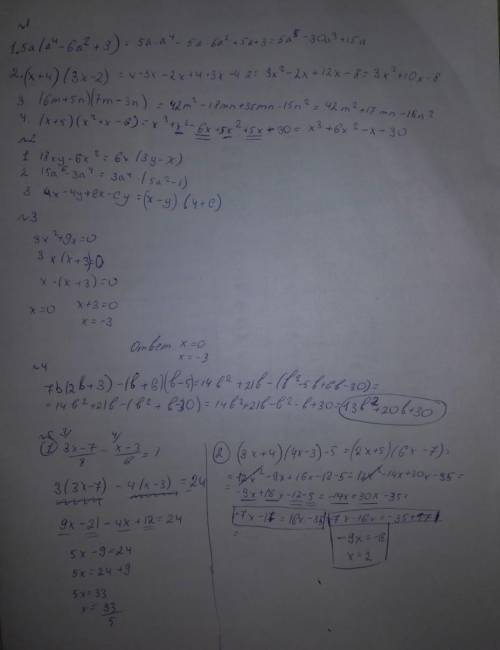 №1
1. 5a(a⁴-6a²+3) = 5a·a⁴-5a·6a²+5a·3=5a⁵-30a³+15a
2. (x+4)(3x-2) = x·3x-2x+4·3x-4·2 = 3x²-2x+12x-8=3x²+10x-8
3 (6m+5n)(7m-3n) = 42m²-18mn+35mn-15n² = 42m²+17mn-15n²
4. (x+5)(x²+x-6)=x³+x²-6x+5x²+5x-30= x³+6x²-x-30
№2
1 18xy-6x²=6x(3y-x)
2 15a⁶-3a⁴=3a⁴·(5a²-1)
3 4x-4y+cx-cy=(x-y)·(4+c)
№3
3x²+9x=0
3x(x+3)=0
x·(x+3)=0
x=0 x+3=0
x=-3
Ответ x=0
x=-3
№4
7b(2b+3)-(b+6)(b-5)=14b²+21b-(b²-5b+6b-30)=
=14b²+21b-(b²+b-30)=14b²+21b-b²-b+30=13b²+20b+30
№5
1) (3x-7)/8 - (x-3)/6 = 1
3(3x-7)-4(x-3)=24
9x-21-4x+12=24
5x-9=24
5x=24+9
5x=33
x=33/5
2 (3x+4)(4x-3)-5=(2x+5)(6x-7)=
=12x²-9x+16x-12-5=12x²-14x+30x-35=
=-9x+16x-12-5=-14x+30x-35=
7x-17=16x-35 7x-16x=-35+17
-9x=-18
x=2